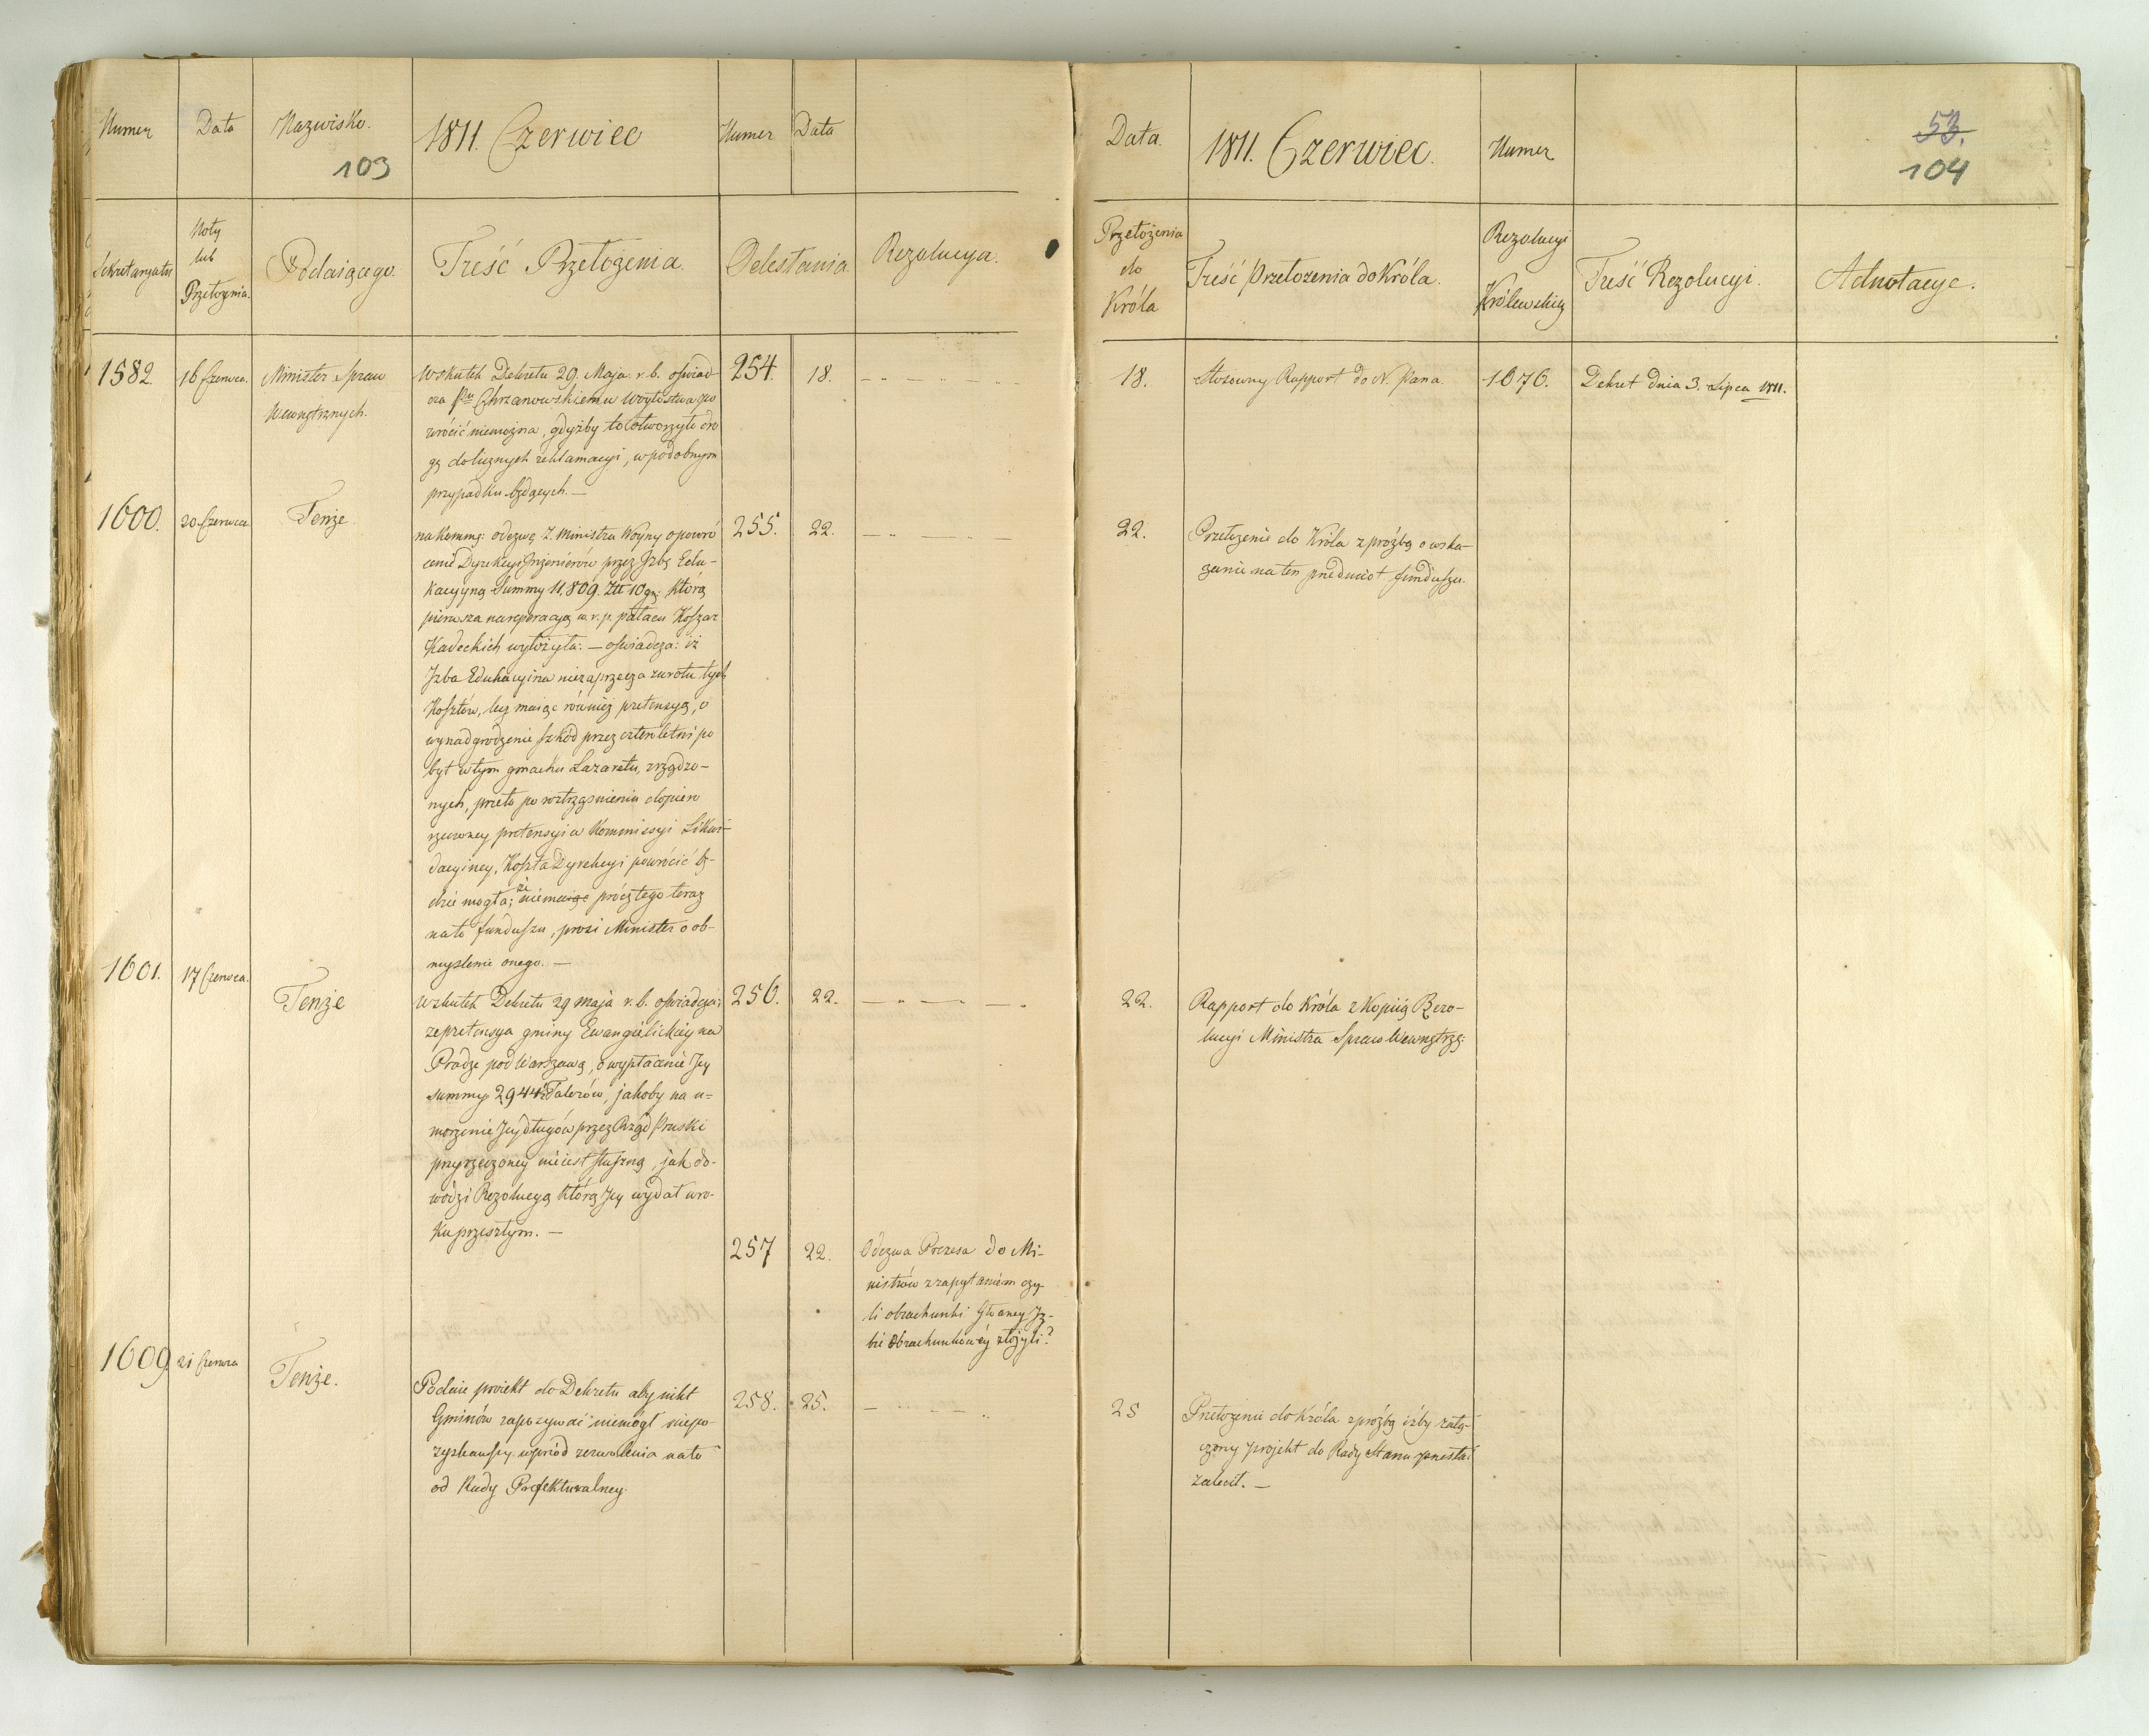 Numer Data Nazwisko. 1811. Czerwiec Numer Data
103
Sekretaryatu Noty lub Przełożenia. Podaiącego. Treść Przełożenia. Odesłania. Rezolucya.
1582. 16 Czerwca. Minister Spraw Wewnętrznych.
Wskutek Dekretu 29. Maja r. b. oświad-
cza Pnu Chrzanowskiemu Woytostwa po
wrócić niemożna, gdyżby to otworzyło dro
gę do licznych reklamacyi, w podobnym
przypadku będących. —
254. 18. — „ — „ —
1600. 20 Czerwca Tenże.
na kommę: odezwę Z. Ministra Woyny o powró
cenie Dyrekcyi Inżenierów przez Izbę Edu-
kacyyną Summy 11,809. Złt 10 gr: którą
pierwsza na reperacyą w r. p. pałacu Koszar
Kadeckich wyłożyła: — oświadcza: iż
Izba Edukacyina niezaprzecza zwrotu tych
Kosztów, lecz maiąc również pretensyą, o
wynadgrodzenie szkód przez czteroletni po
byt w tym gmachu Lazaretu, zrządzo-
nych, przeto po roztrząśnieniu dopiero
rzeczoney pretensyi w Kommissyi Likwi-
dacyiney, Koszta Dyrekcyi powrócić bę-
dzie mogła; że niemaiąc prócz tego teraz
na to funduszu, prosi Minister o ob-
myślenie onego. —
255. 22. — „ — — —
1601. 17 Czerwca. Tenże
Wskutek Dekretu 29 maja r. b. oświadcza;
że pretensya gminy Ewangelickiey na
Pradze pod Warszawą, o wypłacenie Jey
summy 2944 Talerów, jakoby na u-
morzenie Jey długów przez Rząd Pruski
przyrzeczoney nieiest słuszną, jak do-
wodzi Rezolucyą którą Jey wydał w ro-
ku przeszłym. —
256. 22. — „ — — .
257 22.
Odezwa Prezesa do Mi-
nistrów z zapytaniem czy-
li obrachunki Głowney Iz-
bie Obrachunkowey złożyli?
1609 21 Czerwca Tenże.
Podaie proiekt do Dekretu aby nikt
Gminów zapozywać niemógł niepo-
zyskawszy wprzód zezwolenia na to
od Rady Prefekturalney.
258. 25. — — — „
Data. 1811. Czerwiec. Numer
53.
104
Przełożenia do Króla
Treść Przełożenia do Króla.
Rezolucyi Królewskiey
Treść Rezolucyi. Adnotacye.
18. Stosowny Rapport do N. Pana. 1076. Dekret dnia 3. Lipca 1811.
22. Przełożenie do Króla z prózbą o wska-
zanie na ten przedmiot funduszu.
22. Rapport do Króla z Kopiią Rezo-
lucyi Ministra Spraw Wewnętrz:
25 Przełożenie do Króla z prózbą iżby załą-
czony projekt do Rady Stanu przesłać
zalecił. —